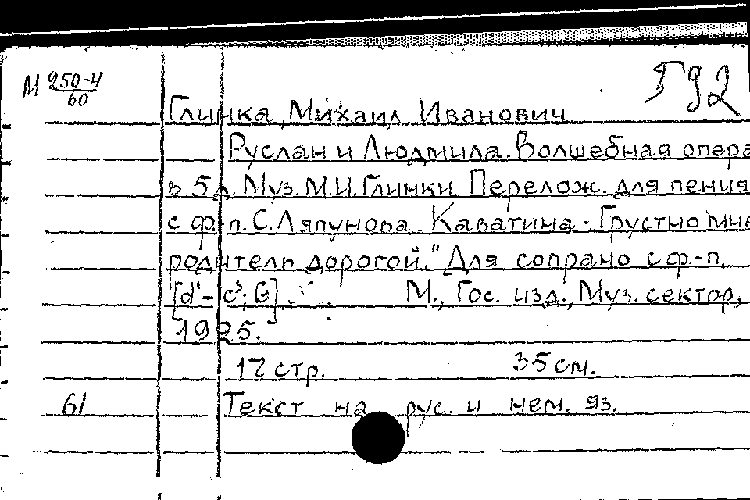 М 250-4
60
592
Глинка, Михаил Иванович
Руслан и Людмила. Волшебная опера
в 5 д. Муз. М.И. Глинки. Перелож. для пения
с ф.-п. С. Ляпунова. Каватина: „Грустно мне
родитель дорогой." Для сопрано с ф.-п.
[d'- c³; G] М., Гос. изд., Муз. сектор,
1925.
17 стр. 35 см.
61 Текст на рус. и нем. яз.